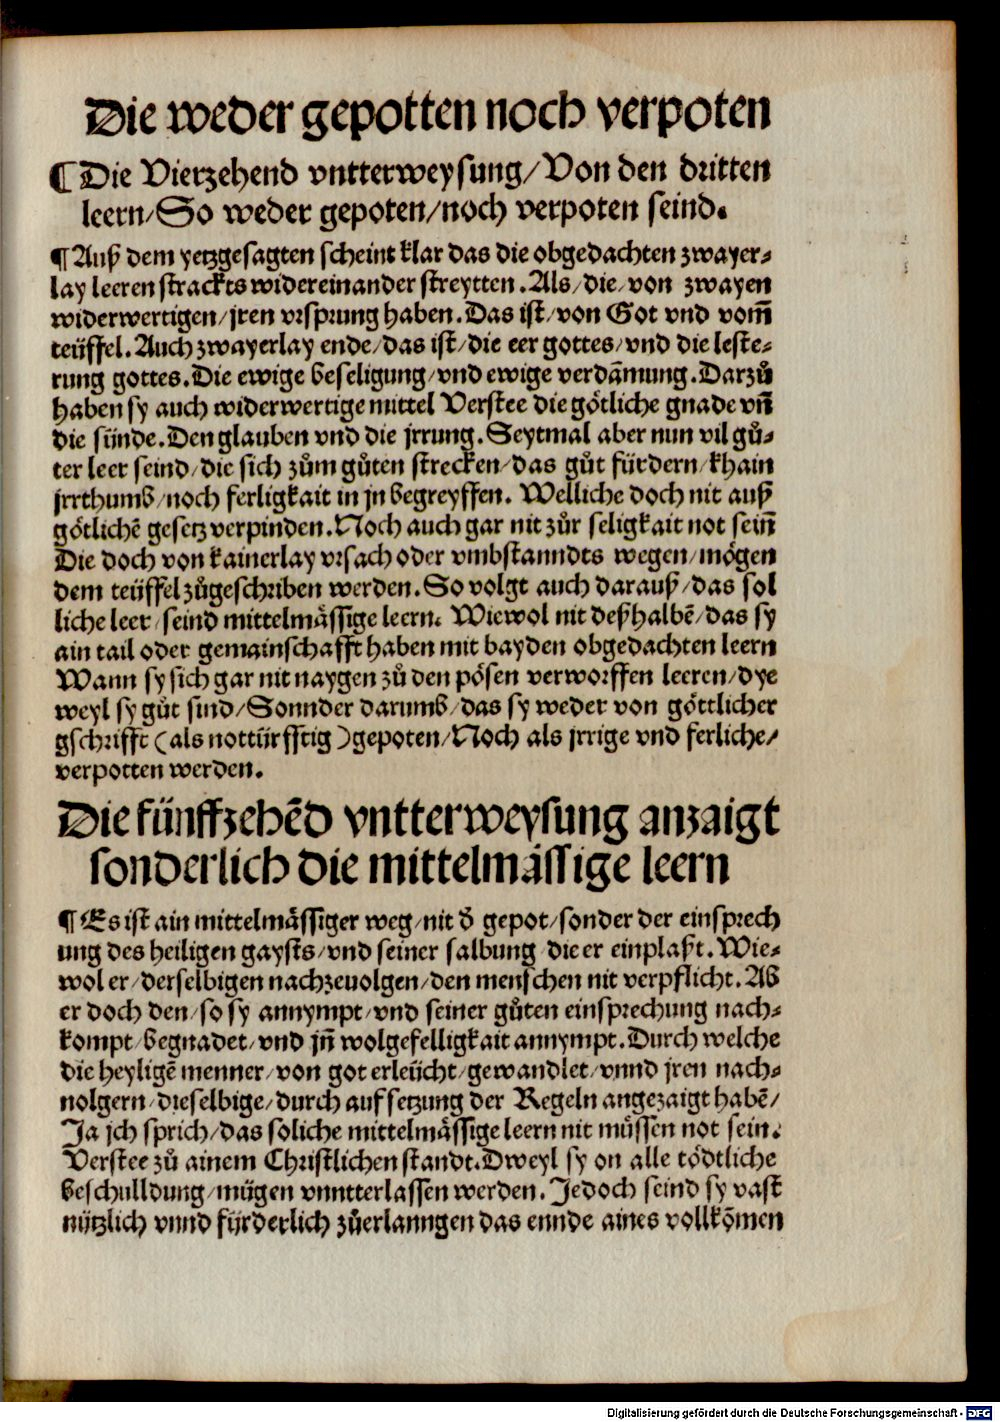 Die weder gepotten noch verpoten
¶ Die Vierzehend vntterweysung/ Von den dritten
leern/ So weder gepoten/ noch verpoten seind.
¶ Auß dem yetzgesagten scheint klar das die obgedachten zwayer-
lay leeren strackts widereinander streytten. Als/ die/ von zwayen
widerwertigen/ jren vrsprung haben. Das ist/ von Got vnd vom̄
teüffel. Auch zwayerlay ende/ das ist/ die eer gottes/ vnd die leste-
rung gottes. Die ewige beseligung/ vnd ewige verdãmung. Darzů
haben sy auch widerwertige mittel Verstee die götliche gnade vn̄
die sünde. Den glauben vnd die jrrung. Seytmal aber nun vil gů-
ter leer seind/ die sich zům gůten strecken/ das gůt fürdern/ khain
jrrthumb/ noch ferligkait in jn begreyffen. Welliche doch nit auß
götlichẽ gesetz verpinden. Noch auch gar nit zůr seligkait not sein̄
Die doch von kainerlay vrsach oder vmbstanndts wegen/ mögen
dem teüffel zůgeschriben werden. So volgt auch darauß/ das sol
liche leer/ seind mittelmässige leern. Wiewol nit deßhalbẽ/ das sy
ain tail oder gemainschafft haben mit bayden obgedachten leern
Wann sy sich gar nit naygen zů den pösen verworffen leeren/ dye
weyl sy gůt sind/ Sonnder darumb/ das sy weder von göttlicher
gschrifft (als nottürfftig) gepoten/ Noch als jrrige vnd ferliche/
verpotten werden.
Die fünffzehẽd vntterweysung anzaigt
sonderlich die mittelmässige leern
¶ Es ist ain mittelmässiger weg/ nit d̄ gepot/ sonder der einsprech
ung des heiligen gaysts/ vnd seiner salbung/ die er einplaßt. Wie-
wol er/ derselbigen nachzeuolgen/ den menschen nit verpflicht. Ab
er doch den/ so sy annympt/ vnd seiner gůten einsprechung nach-
kompt/ begnadet/ vnd jn̄ wolgefelligkait annympt. Durch welche
die heyligẽ menner/ von got erleücht/ gewandlet/ vnnd jren nach-
uolgern/ dieselbige/ durch aufsetzung der Regeln angezaigt habẽ/
Ja jch sprich/ das soliche mittelmässige leern nit müssen not sein.
Verstee zů ainem Christlichen standt. Dweyl sy on alle tödtliche
beschulldung/ mügen vnntterlassen werden. Jedoch seind sy vast
nützlich vnnd fürderlich zůerlanngen das ennde aines vollkõmen
Digitalisierung gefördert durch die Deutsche Forschungsgemeinschaft - DFG